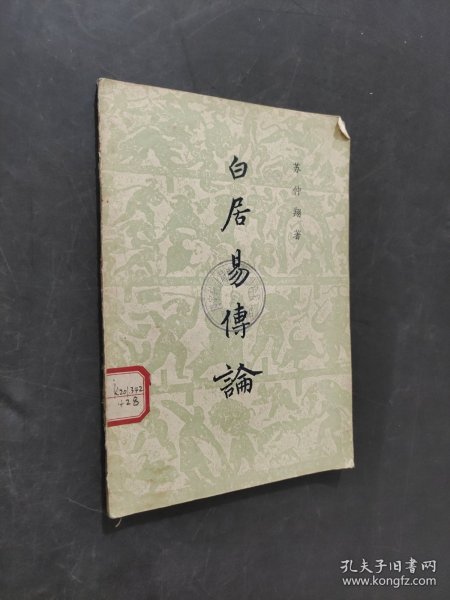 白居易傳論
苏仲翔著
K201.342
428
孔夫子旧书网
www.kongfz.com